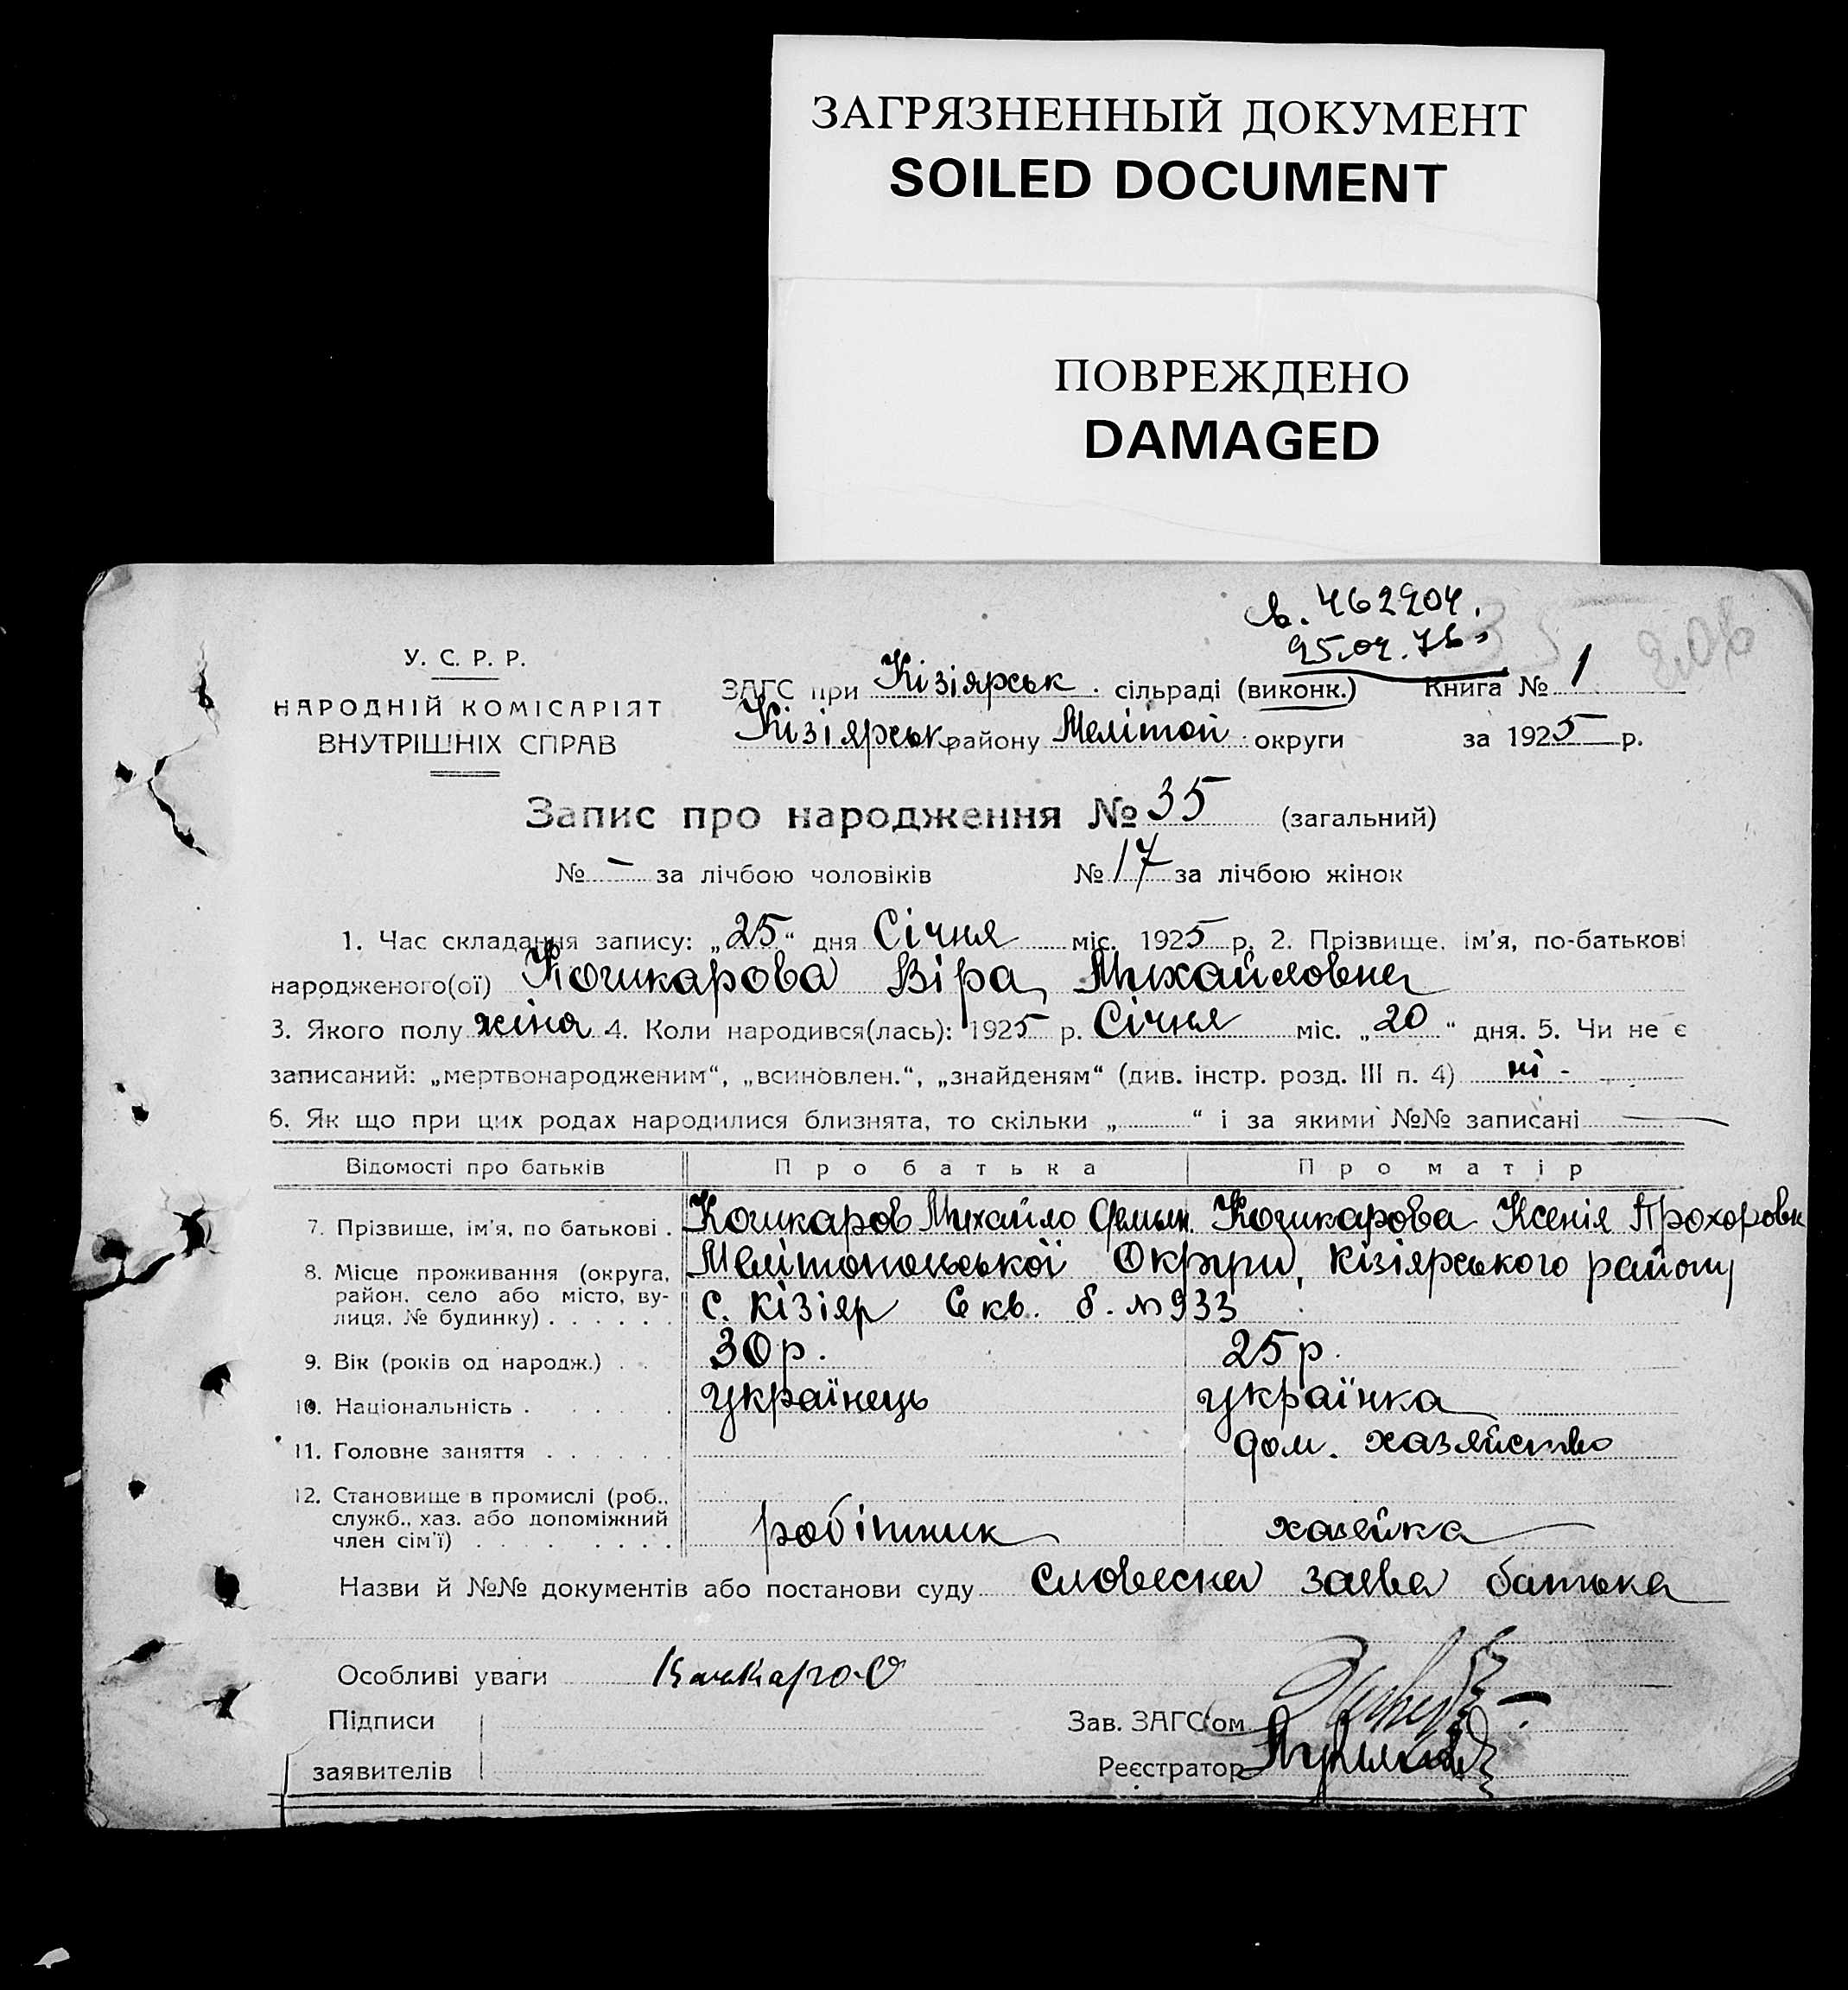 ЗАГРЯЗНЕННЫЙ ДОКУМЕНТ
SOILED DOCUMENT
ПОВРЕЖДЕНО
DAMAGED
462204.
25.04.76
35 206
У. С. Р. Р.
НАРОДНІЙ КОМІСАРІЯТ
ВНУТРІШНІХ СПРАВ
ЗАГС при Кізіярськ. сільраді (виконк.) Книга № 1
Кізіярськ. району Мелітоп. округи за 1925 р.
Запис про народження № 35 (загальний)
№ – за лічбою чоловіків № 17 за лічбою жінок
1. Час складання запису: „25“ дня Січня міс. 1925 р. 2. Прізвище, ім'я, по-батькові
народженого(ої) Кочкарова Віра Михайловна
3. Якого полу жіноч. 4. Коли народився(лась): 1925 р. Січня міс. „20“ дня. 5. Чи не є
записаний: „мертвонародженим“, „всиновлен.“, „знайденям“ (див. інстр. розд. III п. 4) ні -
6. Як що при цих родах народилися близнята, то скільки „ “ і за якими №№ записані —
Відомості про батьків Про батька Про матір
7. Прізвище, ім'я, по батькові . Кочкаров Михайло Кочкарова Ксенія Прохоровн
8. Місце проживання (округа, Мелітопольської Округи, Кізіярського району
район, село або місто, ву-
лиця, № будинку) . . . . . . с. Кізіяр 6 кв. б. № 933
9. Вік (років од народж.) . . 30 р. 25 р.
10. Національність . . . . . українець українка
11. Головне заняття . . . . . . дом. хазяйство
12. Становище в промислі (роб.,
служб., хаз. або допоміжний
член сім'ї) . . . . . . . . робітник хазяйка
Назви й №№ документів або постанови суду словесна заява батька
Особливі уваги Кочкаров
Підписи Зав. ЗАГС'ом
заявителів Реєстратор